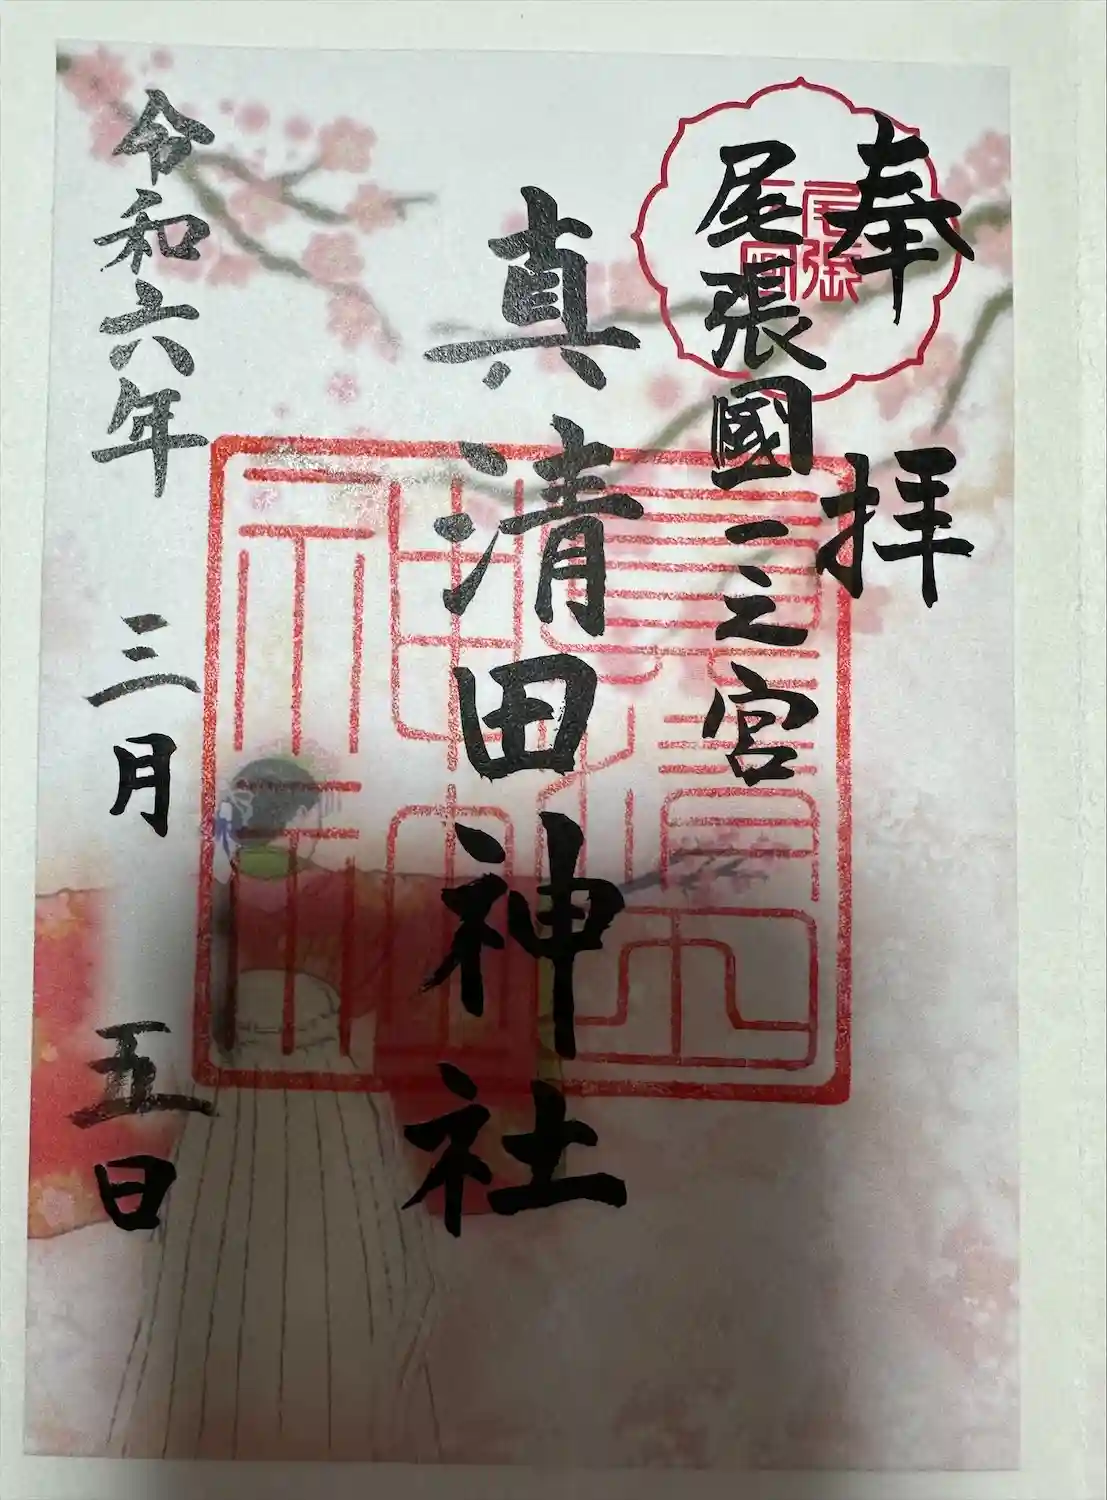 奉拝
尾張國一之宮
真清田神社
令和六年三月五日